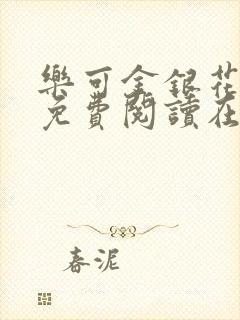 樂可金銀花
免費閱讀在
春泥